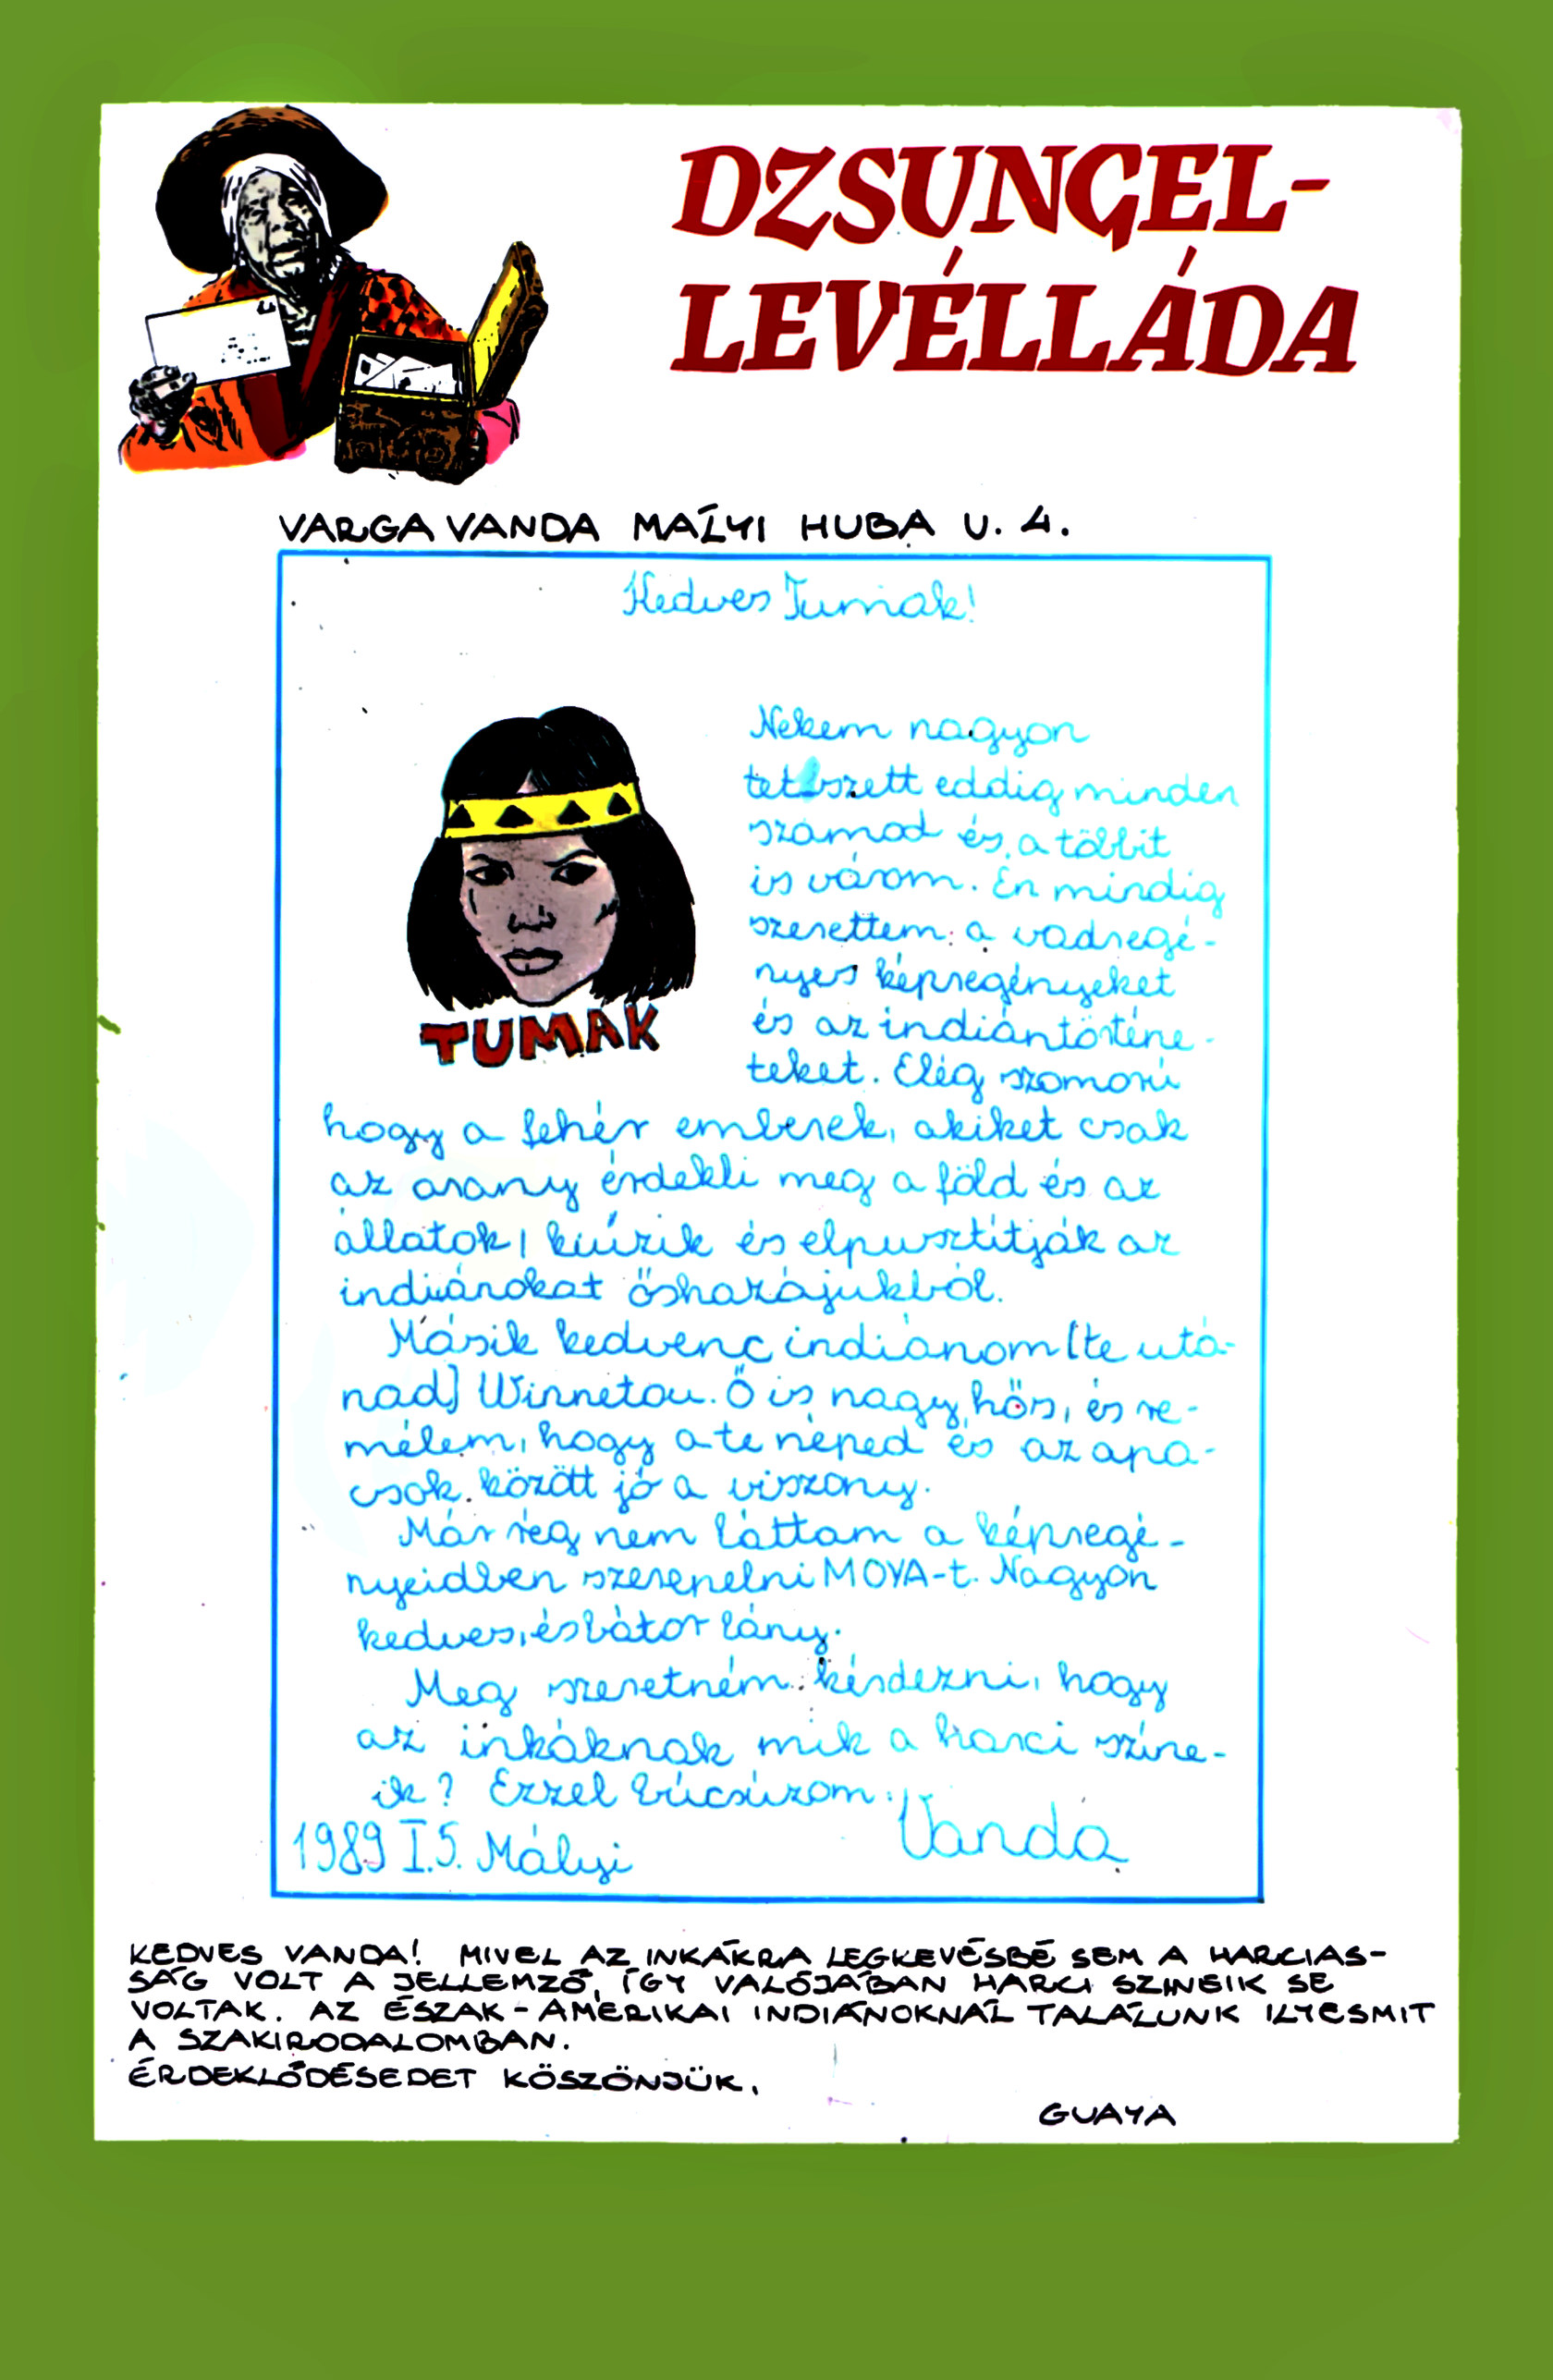 DZSUNGEL-
LEVÉLLÁDA
VARGA VANDA MÁLYI HUBA U. 4.
Kedves Tumak!
Nekem nagyon
tetszett eddig minden
számod és a többit
is várom. Én mindig
szerettem a vadregé-
nyes képregényeket
és az indiántörténe-
teket. Elég szomorú
TUMAK
hogy a fehér emberek, akiket csak
az arany érdekli meg a föld és az
állatok, kiűzik és elpusztítják az
indiánokat őshazájukból.
Másik kedvenc indiánom [te utá-
nad] Winnetou. Ő is nagy hős, és re-
mélem, hogy a te néped és az apa-
csok között jó a viszony.
Már rég nem láttam a képregé-
nyeidben szerepelni MOYA-t. Nagyon
kedves, és bátor lány.
Meg szeretném kérdezni, hogy
az inkáknak mik a harci színe-
ik? Ezzel búcsúzom:
Vanda
1989 I.5. Mályi
KEDVES VANDA! MIVEL AZ INKÁKRA LEGKEVÉSBÉ SEM A HARCIAS-
SÁG VOLT A JELLEMZŐ, ÍGY VALÓJÁBAN HARCI SZINEIK SE
VOLTAK. AZ ÉSZAK-AMERIKAI INDIÁNOKNÁL TALÁLUNK ILYESMIT
A SZAKIRODALOMBAN.
ÉRDEKLŐDÉSEDET KÖSZÖNJÜK.
GUAYA